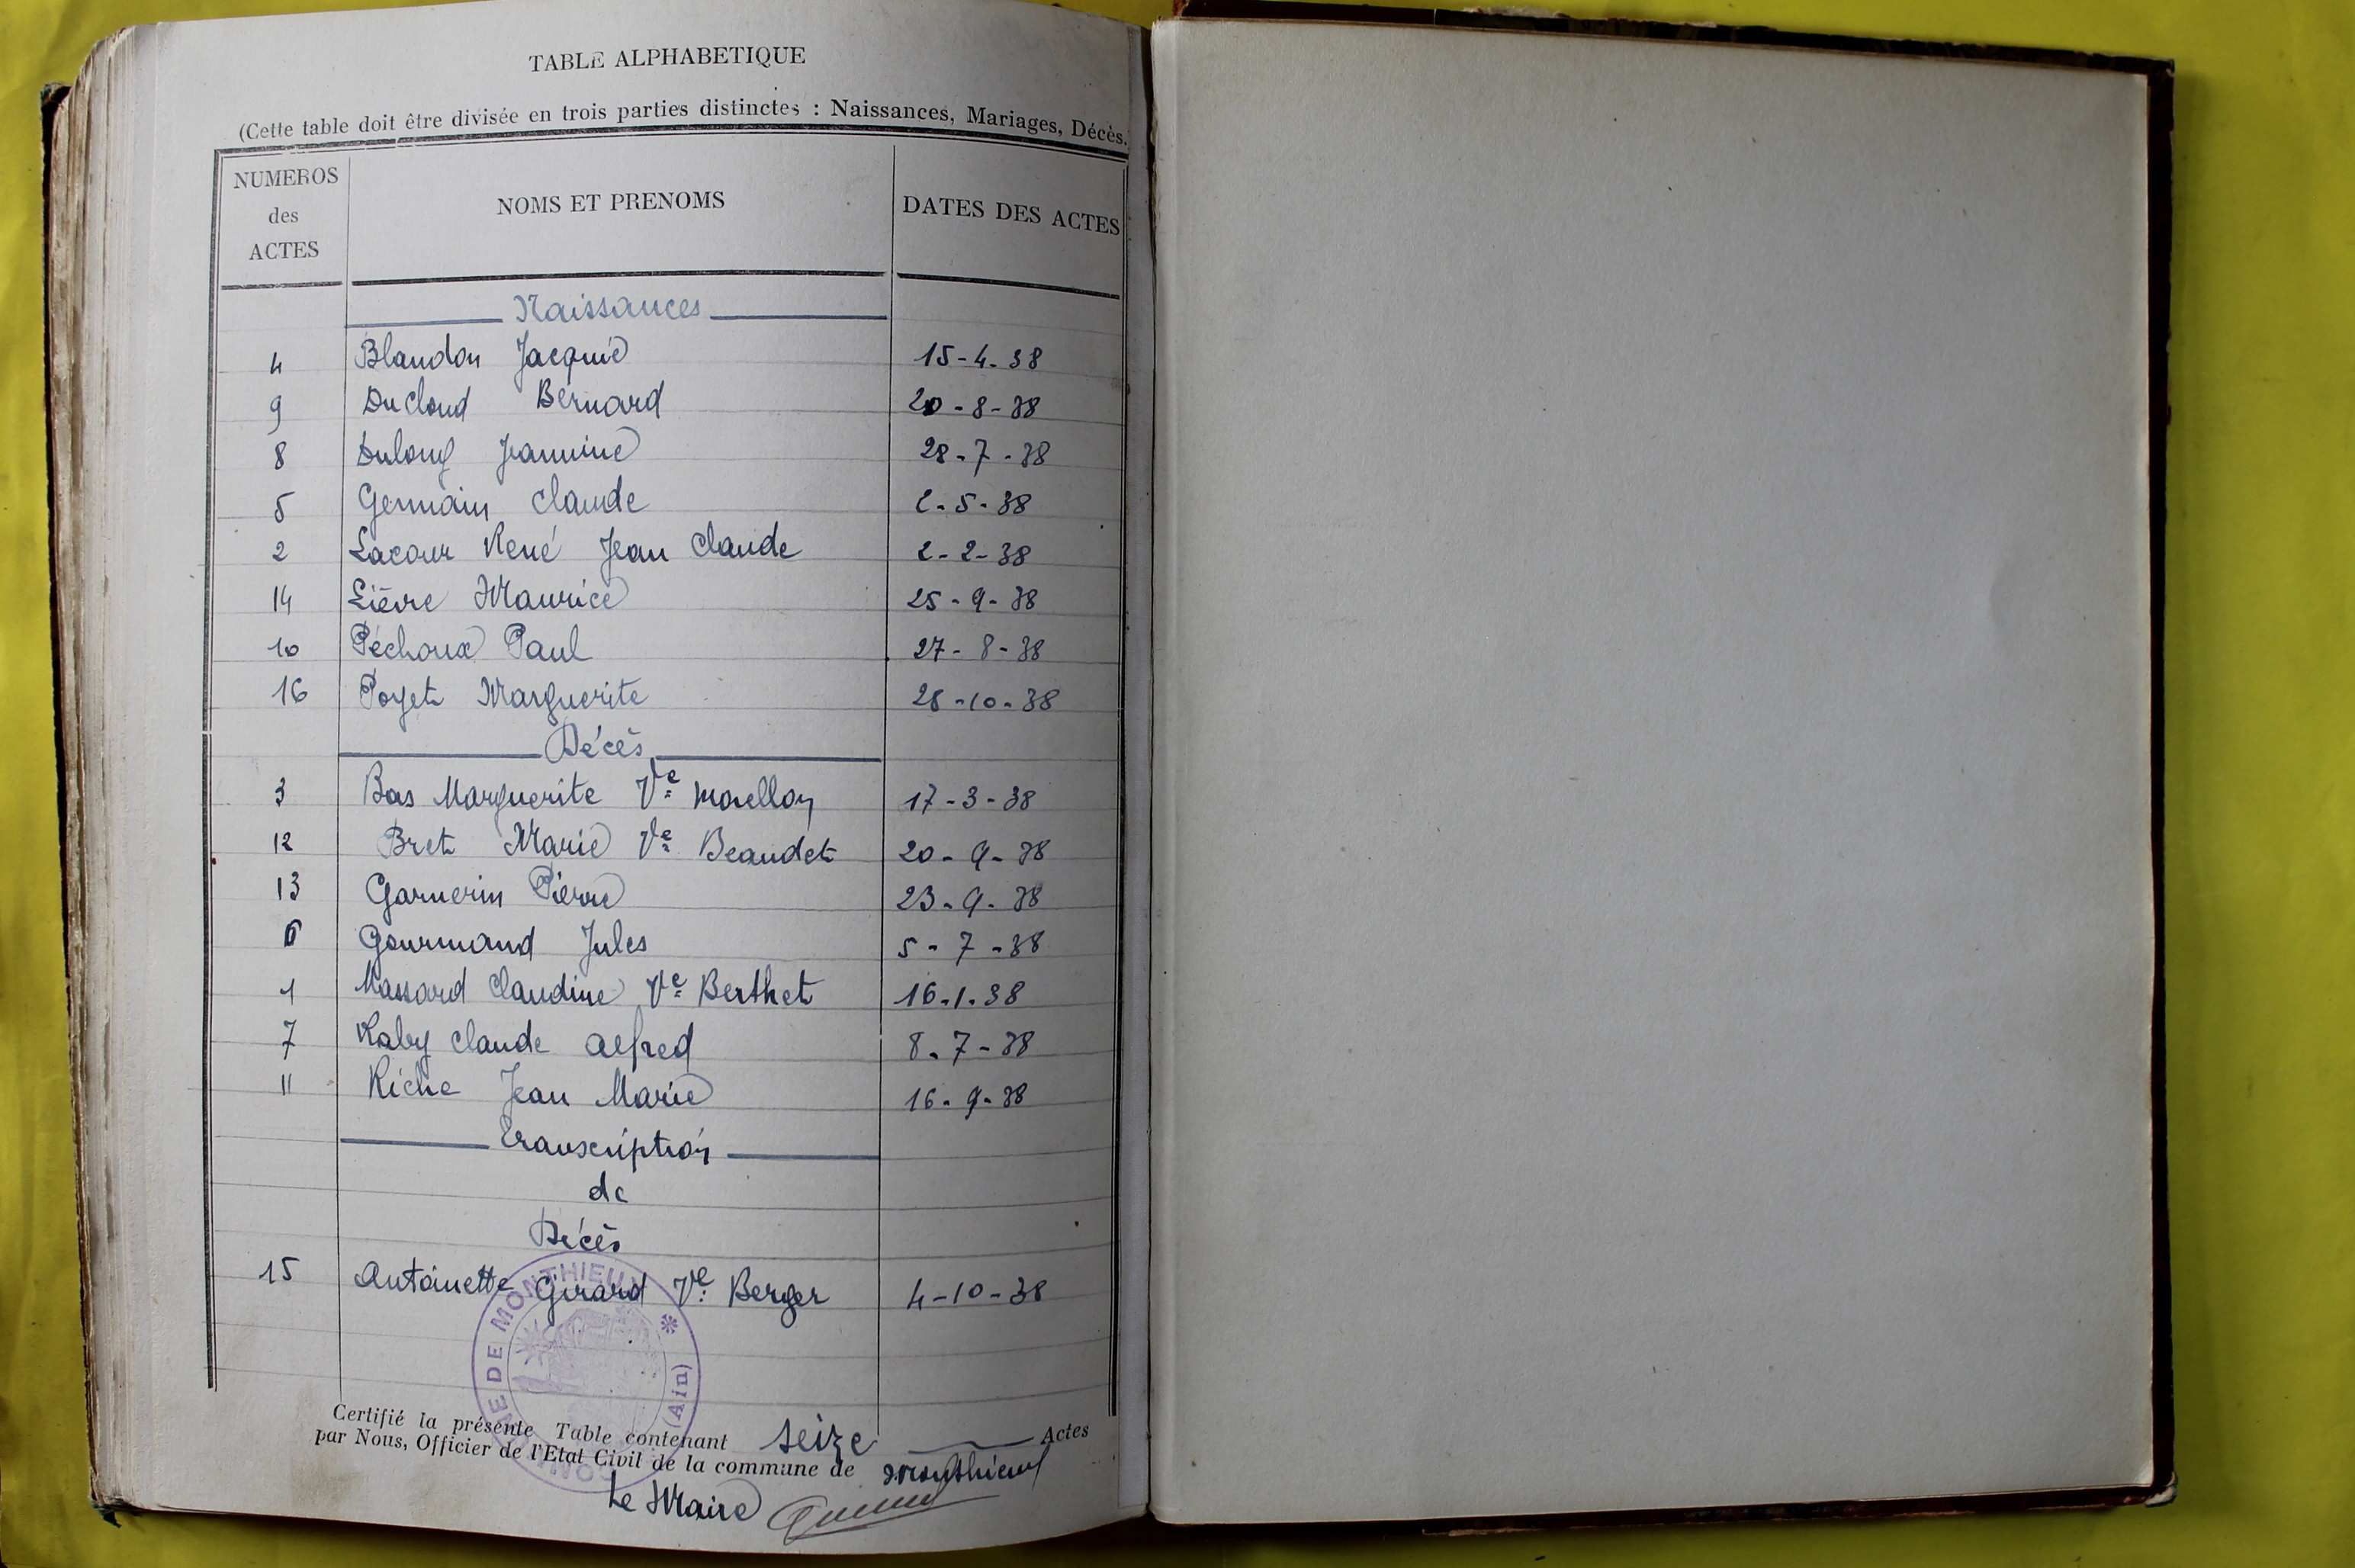 TABLE ALPHABETIQUE
(Cette table doit être divisée en trois parties distinctes : Naissances, Mariages, Décès.
NUMEROS des ACTES NOMS ET PRENOMS DATES DES ACTES
Naissances
4 Blandon Jacquie 15-4-38
9 Ducloud Bernard 20-8-38
8 Dulong Jeannine 28-7-38
5 Germain Claude 2-5-38
2 Lacour René Jean Claude 2-2-38
14 Lièvre Maurice 25-9-38
10 Péchoux Paul 27-8-38
16 Poyet Marguerite 28-10-38
Décès
3 Bas Marguerite Ve Morellon 17-3-38
12 Bret Marie Ve Beaudet 20-9-38
13 Garnerin Pierre 23-9-38
6 Gourmand Jules 5-7-38
1 Massard Claudine Ve Berthet 16.1.38
7 Raby Claude Alfred 8-7-38
11 Riche Jean Marie 16-9-38
Transcription
de
Décès
15 Antoinette Girard Ve Berger 4-10-38
DE MONTHIEUX (Ain)
Certifié la présente Table contenant seize Actes
par Nous, Officier de l'Etat Civil de la commune de Monthieux
Le Maire